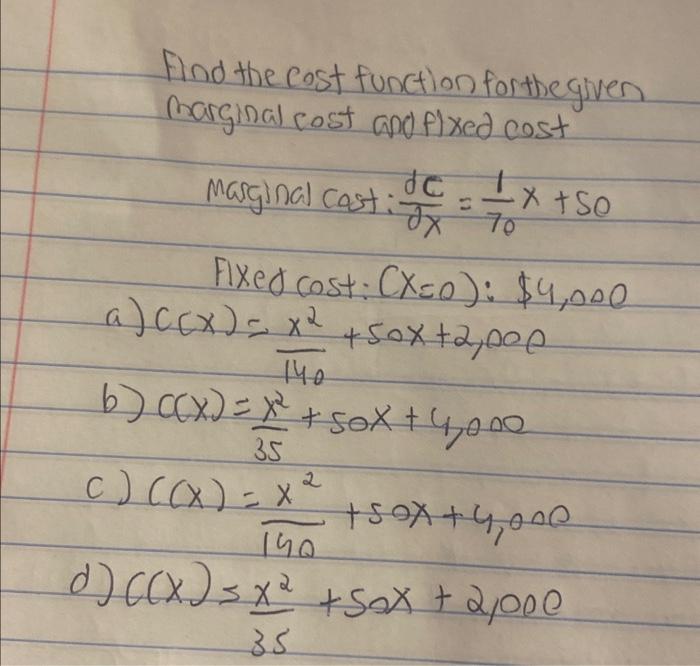 Find the cost function for the given
marginal cost and fixed cost
Marginal cost: dC/dx = 1/70 x + 50
Fixed cost: (x=0): $4,000
a) C(x) = x²/140 + 50x + 2,000
b) C(x) = x²/35 + 50x + 4,000
c) C(x) = x²/140 + 50x + 4,000
d) C(x) = x²/35 + 50x + 2,000